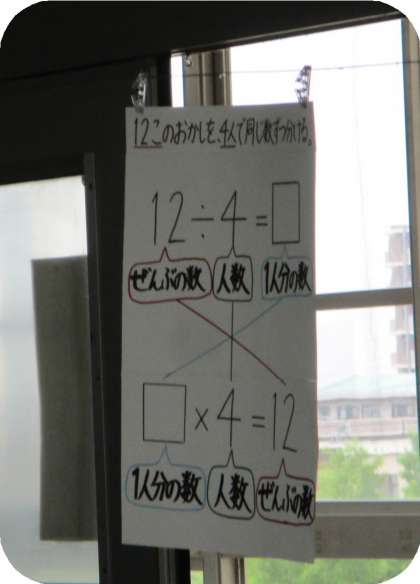 12このおかしを、4人で同じ数ずつ分ける。
12÷4=□
ぜんぶの数 人数 1人分の数
□×4=12
1人分の数 人数 ぜんぶの数